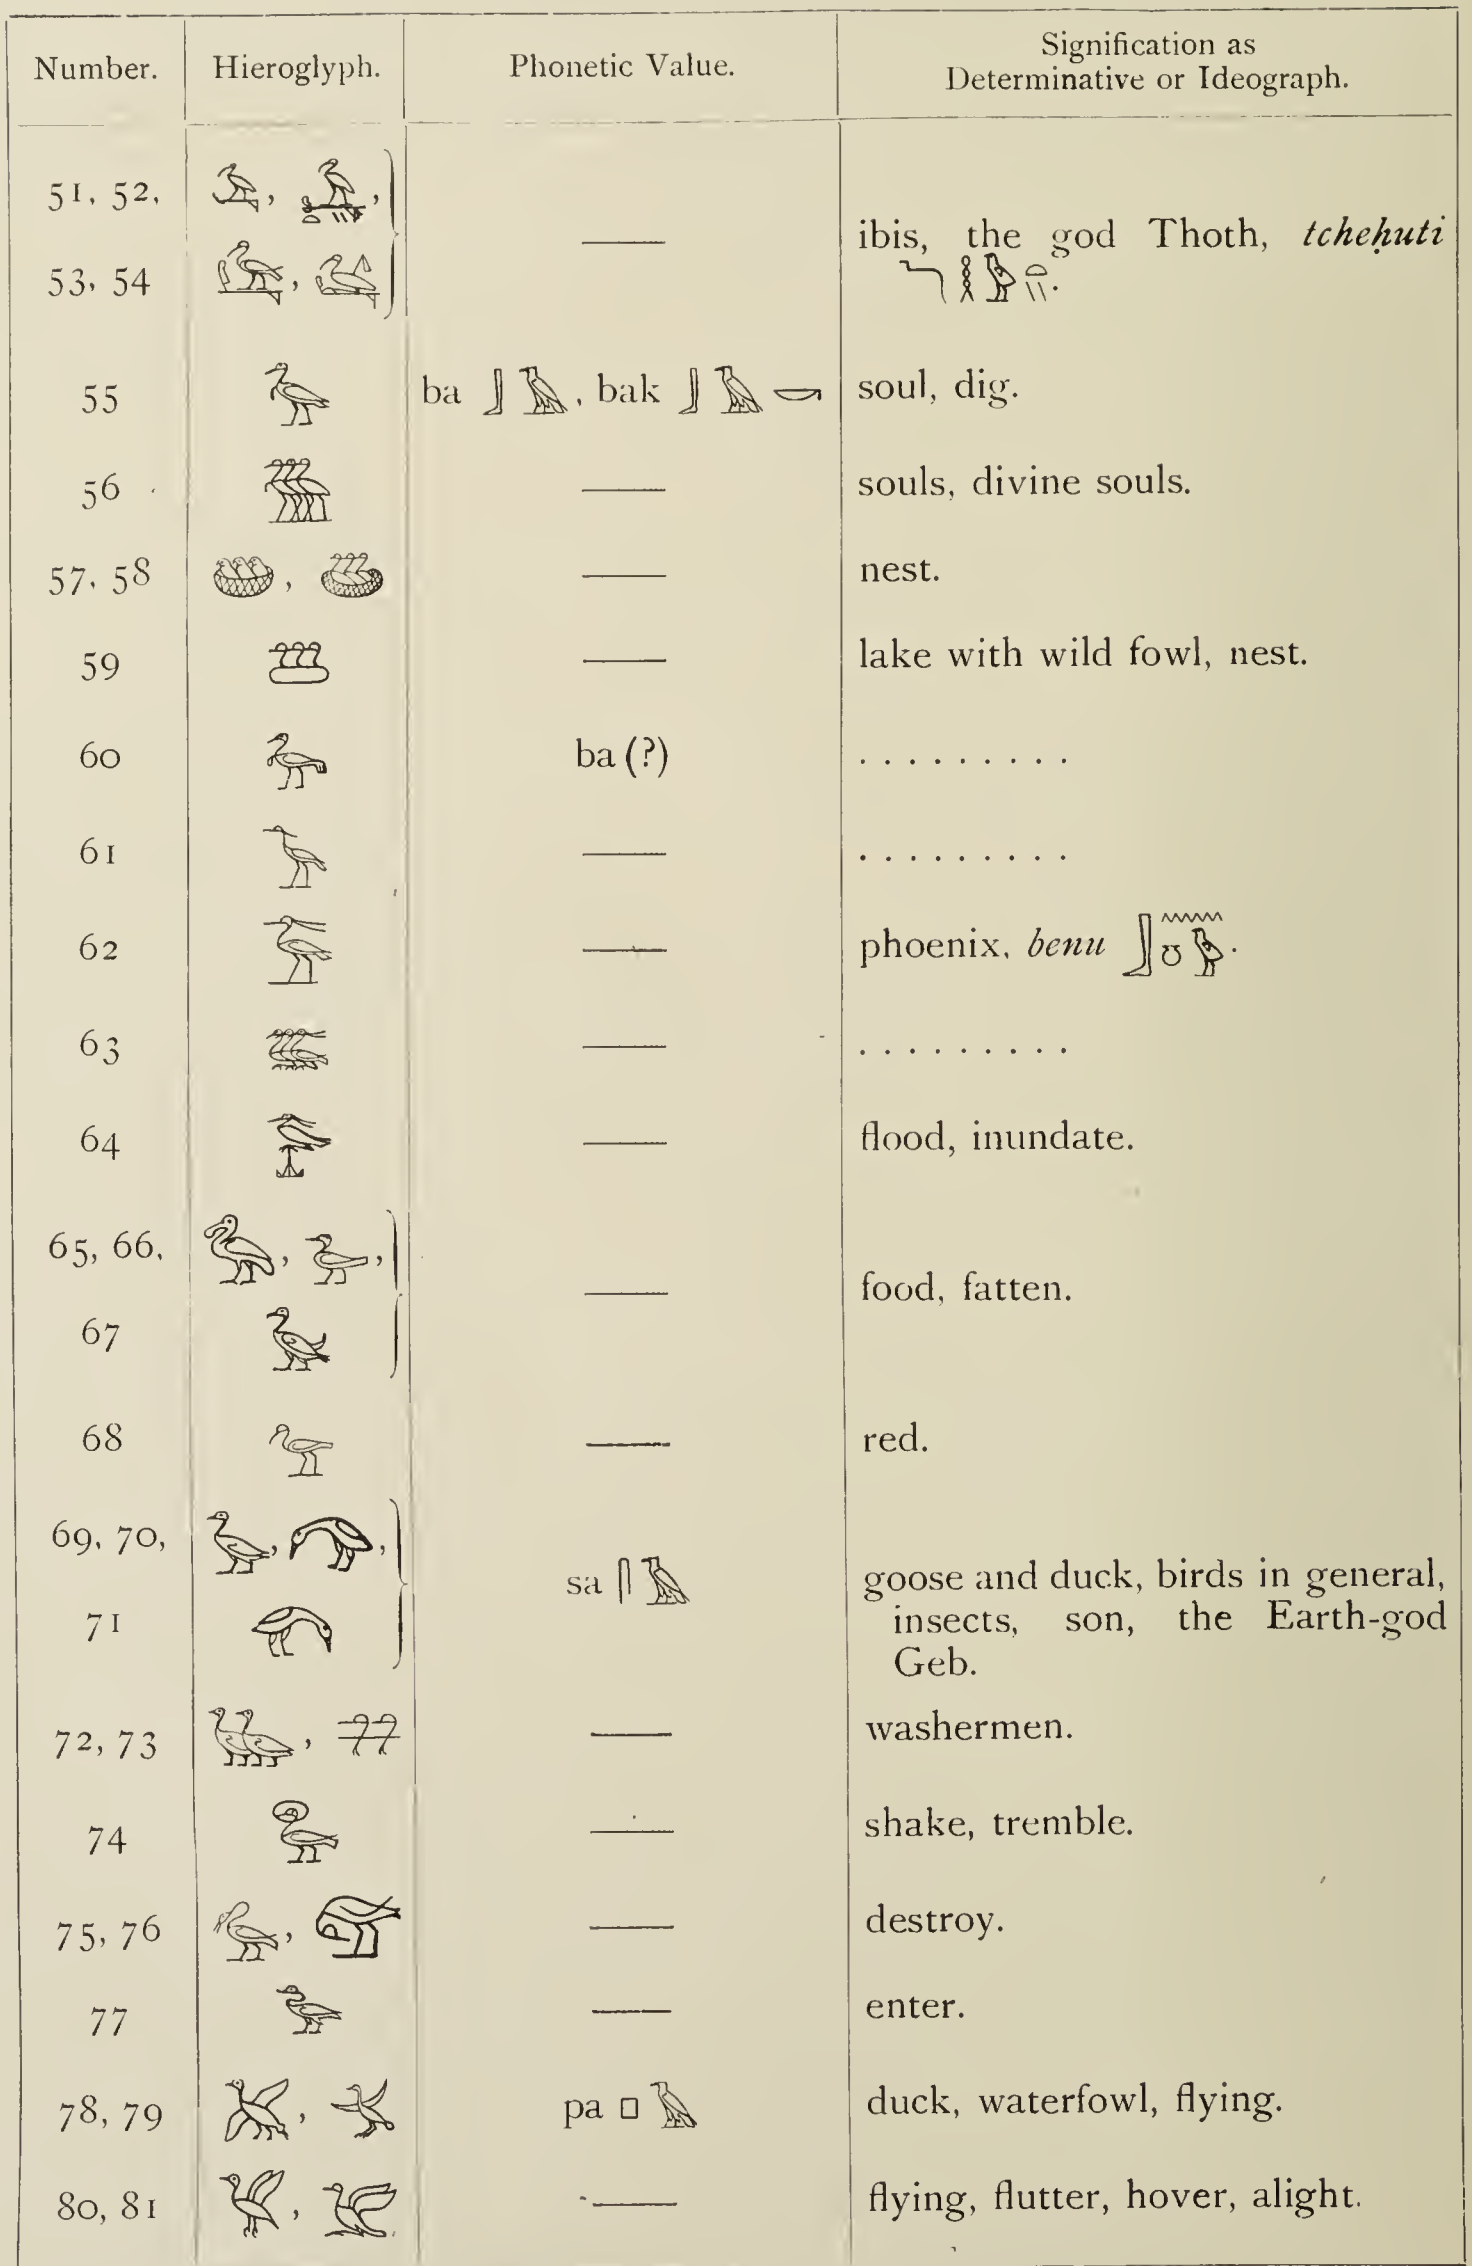 Number. Hieroglyph. Phonetic Value. Signification as
Determinative or Ideograph.
51, 52, 𓅝, 𓅞, — ibis, the god Thoth, tcheḥuti
53, 54 𓆓𓎛𓅱𓏏𓏭.
55 𓅡 ba 𓃀𓄿, bak 𓃀𓄿𓎡 soul, dig.
56 𓅢 — souls, divine souls.
57, 58 — nest.
59 𓅸 — lake with wild fowl, nest.
60 ba (?) . . . . . . . . .
61 — . . . . . . . . .
62 𓅣 — phoenix, benu 𓃀𓈖𓏌𓅱.
63 — . . . . . . . . .
64 𓅤 — flood, inundate.
65, 66, — food, fatten.
67
68 𓅟 — red.
69, 70, 𓅭, sa 𓋴𓄿 goose and duck, birds in general,
71 insects, son, the Earth-god
Geb.
72, 73 — washermen.
74 — shake, tremble.
75, 76 — destroy.
77 — enter.
78, 79 𓅮, pa 𓊪𓄿 duck, waterfowl, flying.
80, 81 — flying, flutter, hover, alight.